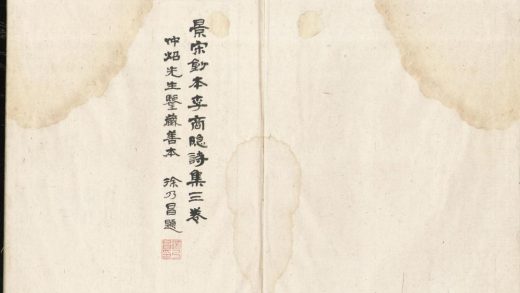 景宋鈔本李商隱詩集三卷
仲炤先生鑒藏善本　徐乃昌題